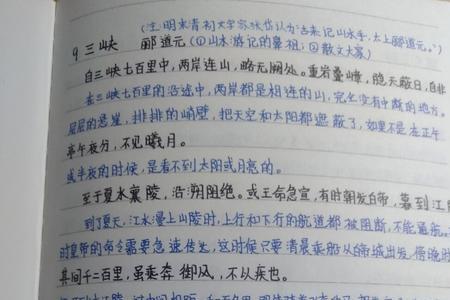 (注:明末清初大学家张岱认为:古来记山水手,太上郦道元。)
9 三峡 郦道元(①山水游记的鼻祖;②散文大家)
自三峡七百里中,两岸连山,略无阙处。重岩叠嶂,隐天蔽日,自非
在三峡七百里的沿途中,两岸都是相连的山,完全没有中断的地方。
层层的悬崖,排排的峭壁,把天空和太阳都遮蔽了,如果不是在正午
亭午夜分,不见曦月。
或半夜的时候,是看不到太阳或月亮的。
至于夏水襄陵,沿溯阻绝。或王命急宣,有时朝发白帝,暮到江
到了夏天,江水漫上山陵时,上行和下行的航道都被阻断,不能通航。
时皇帝的命令需要急速传达,这时候只要清晨乘船从白帝城出发,傍晚时
其间千二百里,虽乘奔御风,不以疾也。